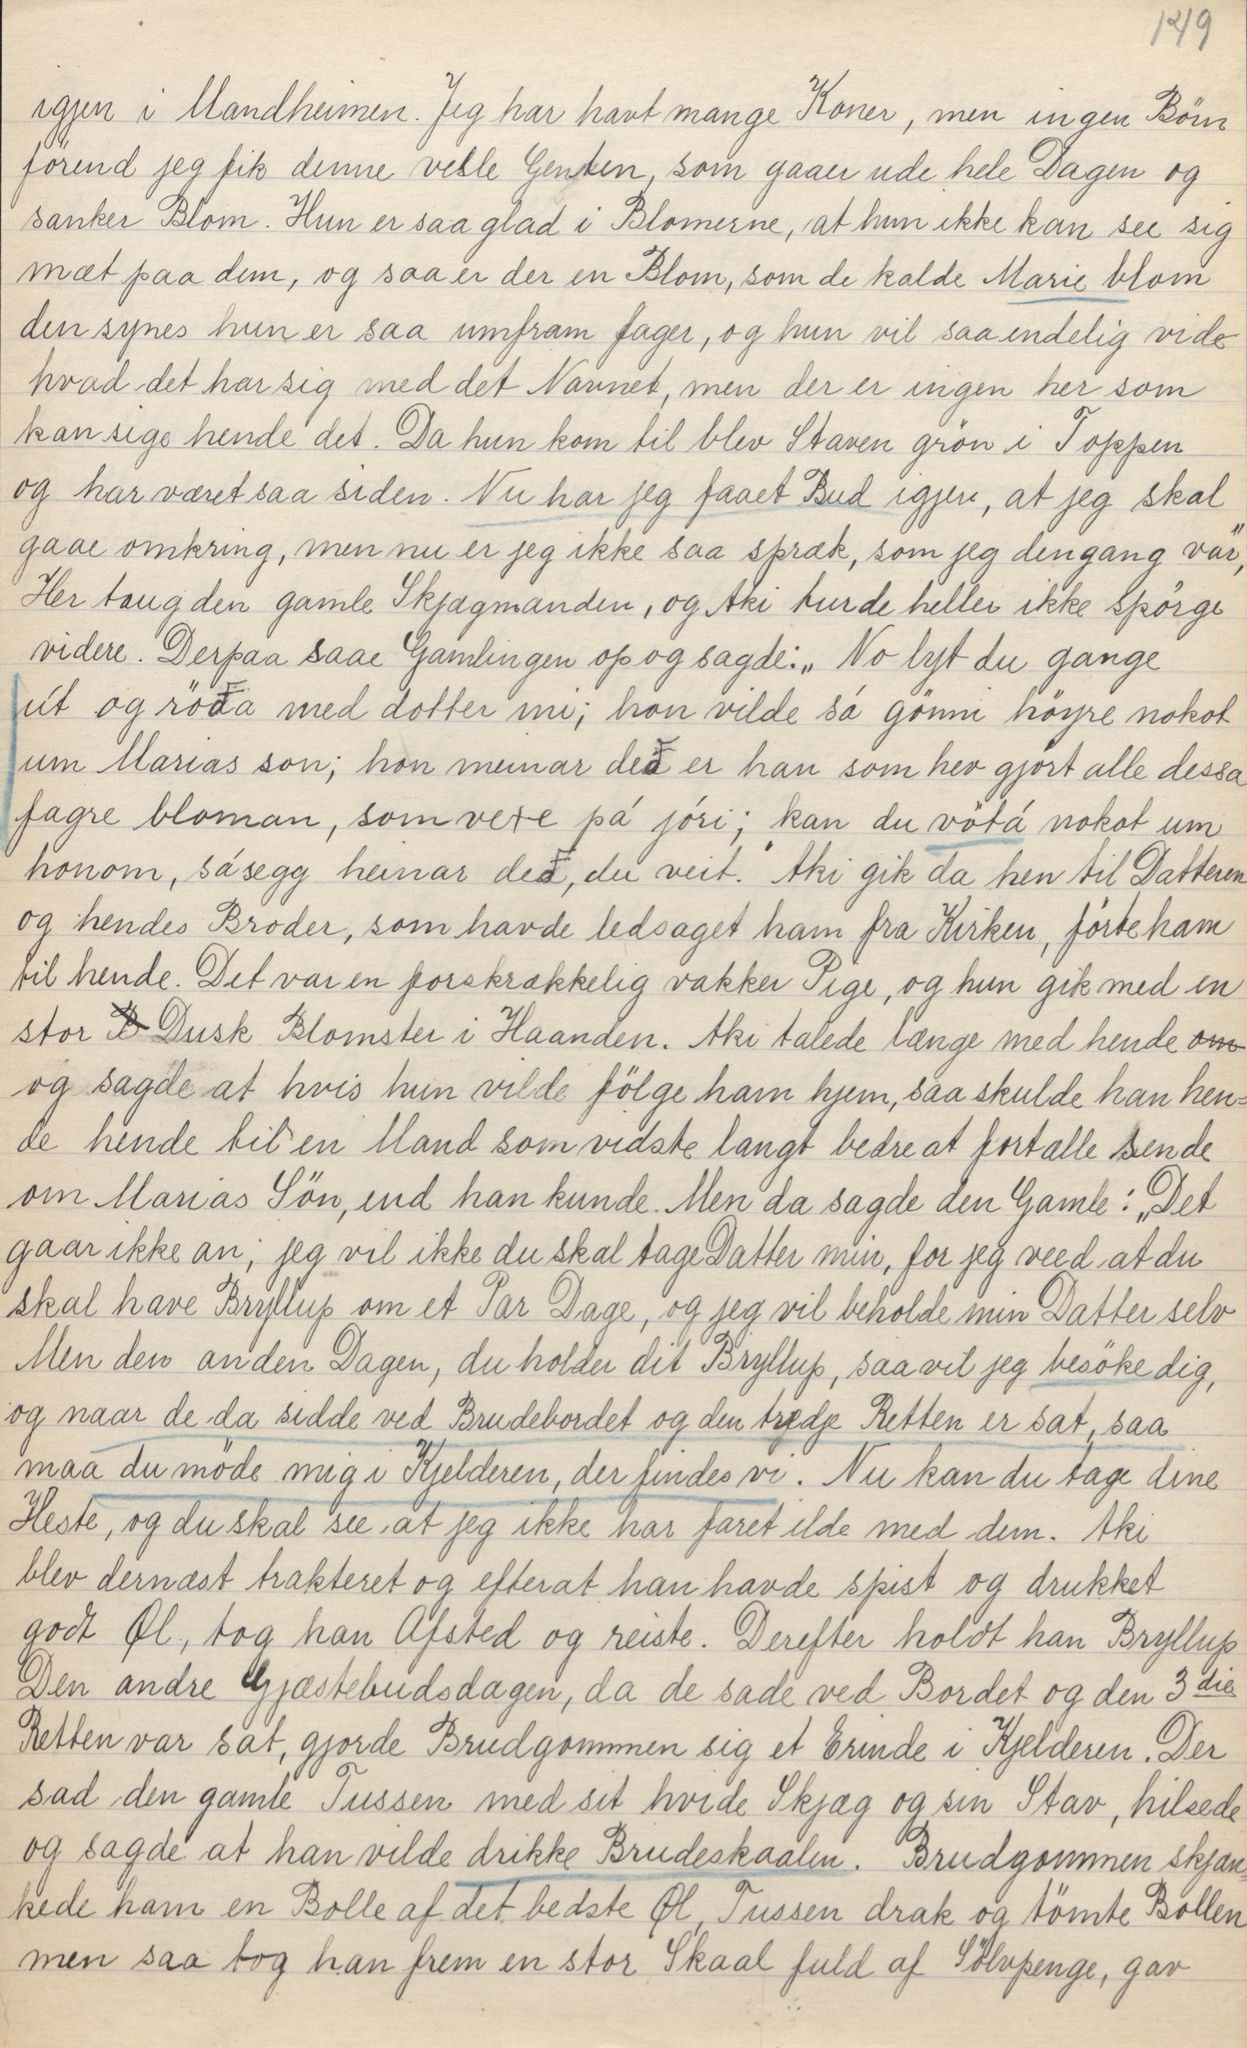 149
igjen i Mandheimen. Jeg har havt mange Koner, men ingen Börn
förend jeg fik denne vesle Genten, som gaaer ude hele Dagen og
sanker Blom. Hun er saa glad i Blomerne, at hun ikke kan see sig
mæt paa dem, og saa er der en Blom, som de kalde Marie blom
den synes hun er saa umfram fager, og hun vil saa endelig vide
hvad det har sig med det Navnet, men der er ingen her som
kan sige hende det. Da hun kom til blev Staven grön i Toppen
og har været saa siden. Nu har jeg faaet Bud igjen, at jeg skal
gaae omkring, men nu er jeg ikke saa spræk, som jeg dengang var",
Her taug den gamle Skjægmanden, og Aki turde heller ikke spörge
videre. Derpaa saae Gamlingen op og sagde: „No lyt du gange
út og röða med dotter mi; hon vilde sá gönni höyre nokot
um Marias son; hon meinar deð er han som hev gjört alle dessa
fagre bloman, som vexe pá jóri; kan du vötá nokot um
honom, sá segg heinar deð, du veit." Aki gik da hen til Datteren
og hendes Broder, som havde ledsaget ham fra Kirken, förte ham
til hende. Det var en forskrækkelig vakker Pige, og hun gik med en
stor B Dusk Blomster i Haanden. Aki talede længe med hende om
og sagde at hvis hun vilde fölge ham hjem, saa skulde han hen=
de hende til en Mand som vidste langt bedre at fortælle hende
om Marias Sön, end han kunde. Men da sagde den Gamle: „Det
gaar ikke an; jeg vil ikke du skal tage Datter min, for jeg veed at du
skal have Bryllup om et Par Dage, og jeg vil beholde min Datter selv
Men den anden Dagen, du holder dit Bryllup, saa vil jeg besöke dig,
og naar de da sidde ved Brudebordet og den tredje Retten er sat, saa
maa du möde mig i Kjelderen, der findes vi. Nu kan du tage dine
Heste, og du skal see at jeg ikke har faret ilde med dem. Aki
blev dernæst trakteret og efterat han havde spist og drukket
godt Øl, tog han Afsted og reiste. Derefter holdt han Bryllup
Den andre Gjæstebudsdagen, da de sade ved Bordet og den 3die
Retten var sat, gjorde Brudgommen sig et Erinde i Kjelderen. Der
sad den gamle Tussen med sit hvide Skjæg og sin Stav, hilsede
og sagde at han vilde drikke Brudeskaalen. Brudgommen skjæn=
kede ham en Bolle af det bedste Øl, Tussen drak og tömte Bollen
men saa tog han frem en stor Skaal fuld af Sölvpenge, gav